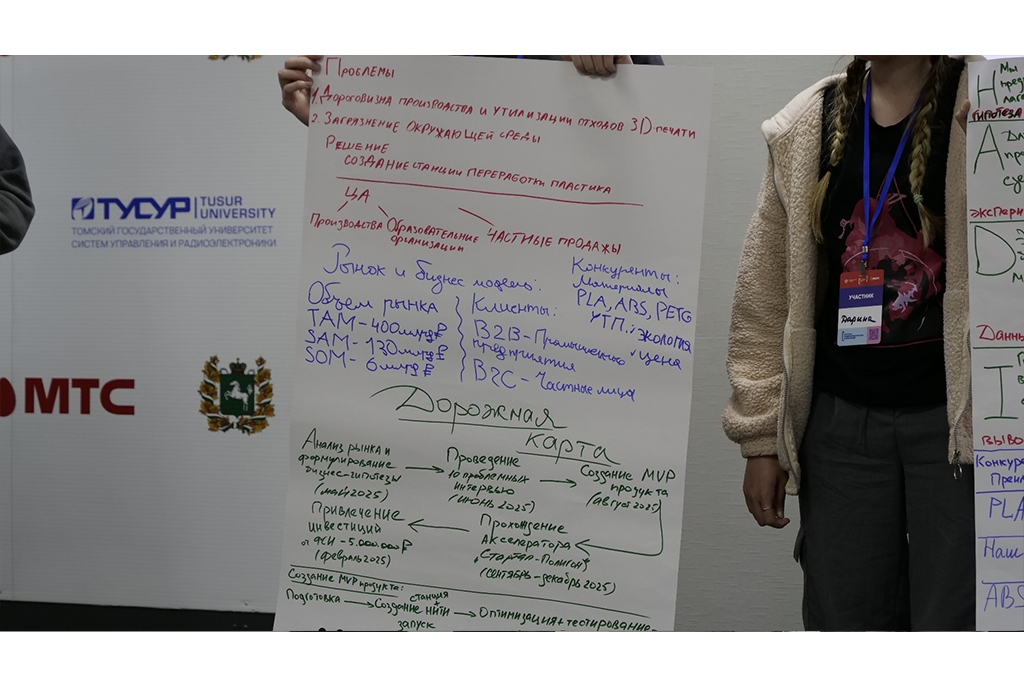 ТУСУР
TUSUR
UNIVERSITY
ТОМСКИЙ ГОСУДАРСТВЕННЫЙ УНИВЕРСИТЕТ
СИСТЕМ УПРАВЛЕНИЯ И РАДИОЭЛЕКТРОНИКИ
МТС
Проблемы
1. Дороговизна производства и утилизации отходов 3D-печати
2. Загрязнение окружающей среды
Решение
создание станции переработки пластика
ЦА
Производства Образовательные организации
Частные продажы
Рынок и бизнес модель:
Объем рынка
TAM - 400 млрд ₽
SAM - 130 млрд ₽
SOM - 6 млрд ₽
Клиенты:
B2B - Промышленные
предприятия
B2C - Частные лица
Конкуренты:
Материалы
PLA, ABS, PETG
УТП: экология
цена
Дорожная
карта
Анализ рынка и
формулирование
бизнес-гипотезы
(май 2025)
Проведение
10 проблемных
интервью
(июнь 2025)
Создание MVP
продукта
(август 2025)
Прохождение
Акселератора
"Стартап-Полигон"
(сентябрь-декабрь 2025)
Привлечение
инвестиций
от ФСИ - 5.000.000 ₽
(февраль 2025)
Создание MVP продукта:
Подготовка
станция
+
Создание нити
запуск
Оптимизация + тестирование
УЧАСТНИК
Дарина
Н
Мы
гипотеза
А
D
Данны
I
выво
Конкуре
PLA
Наш
ABS